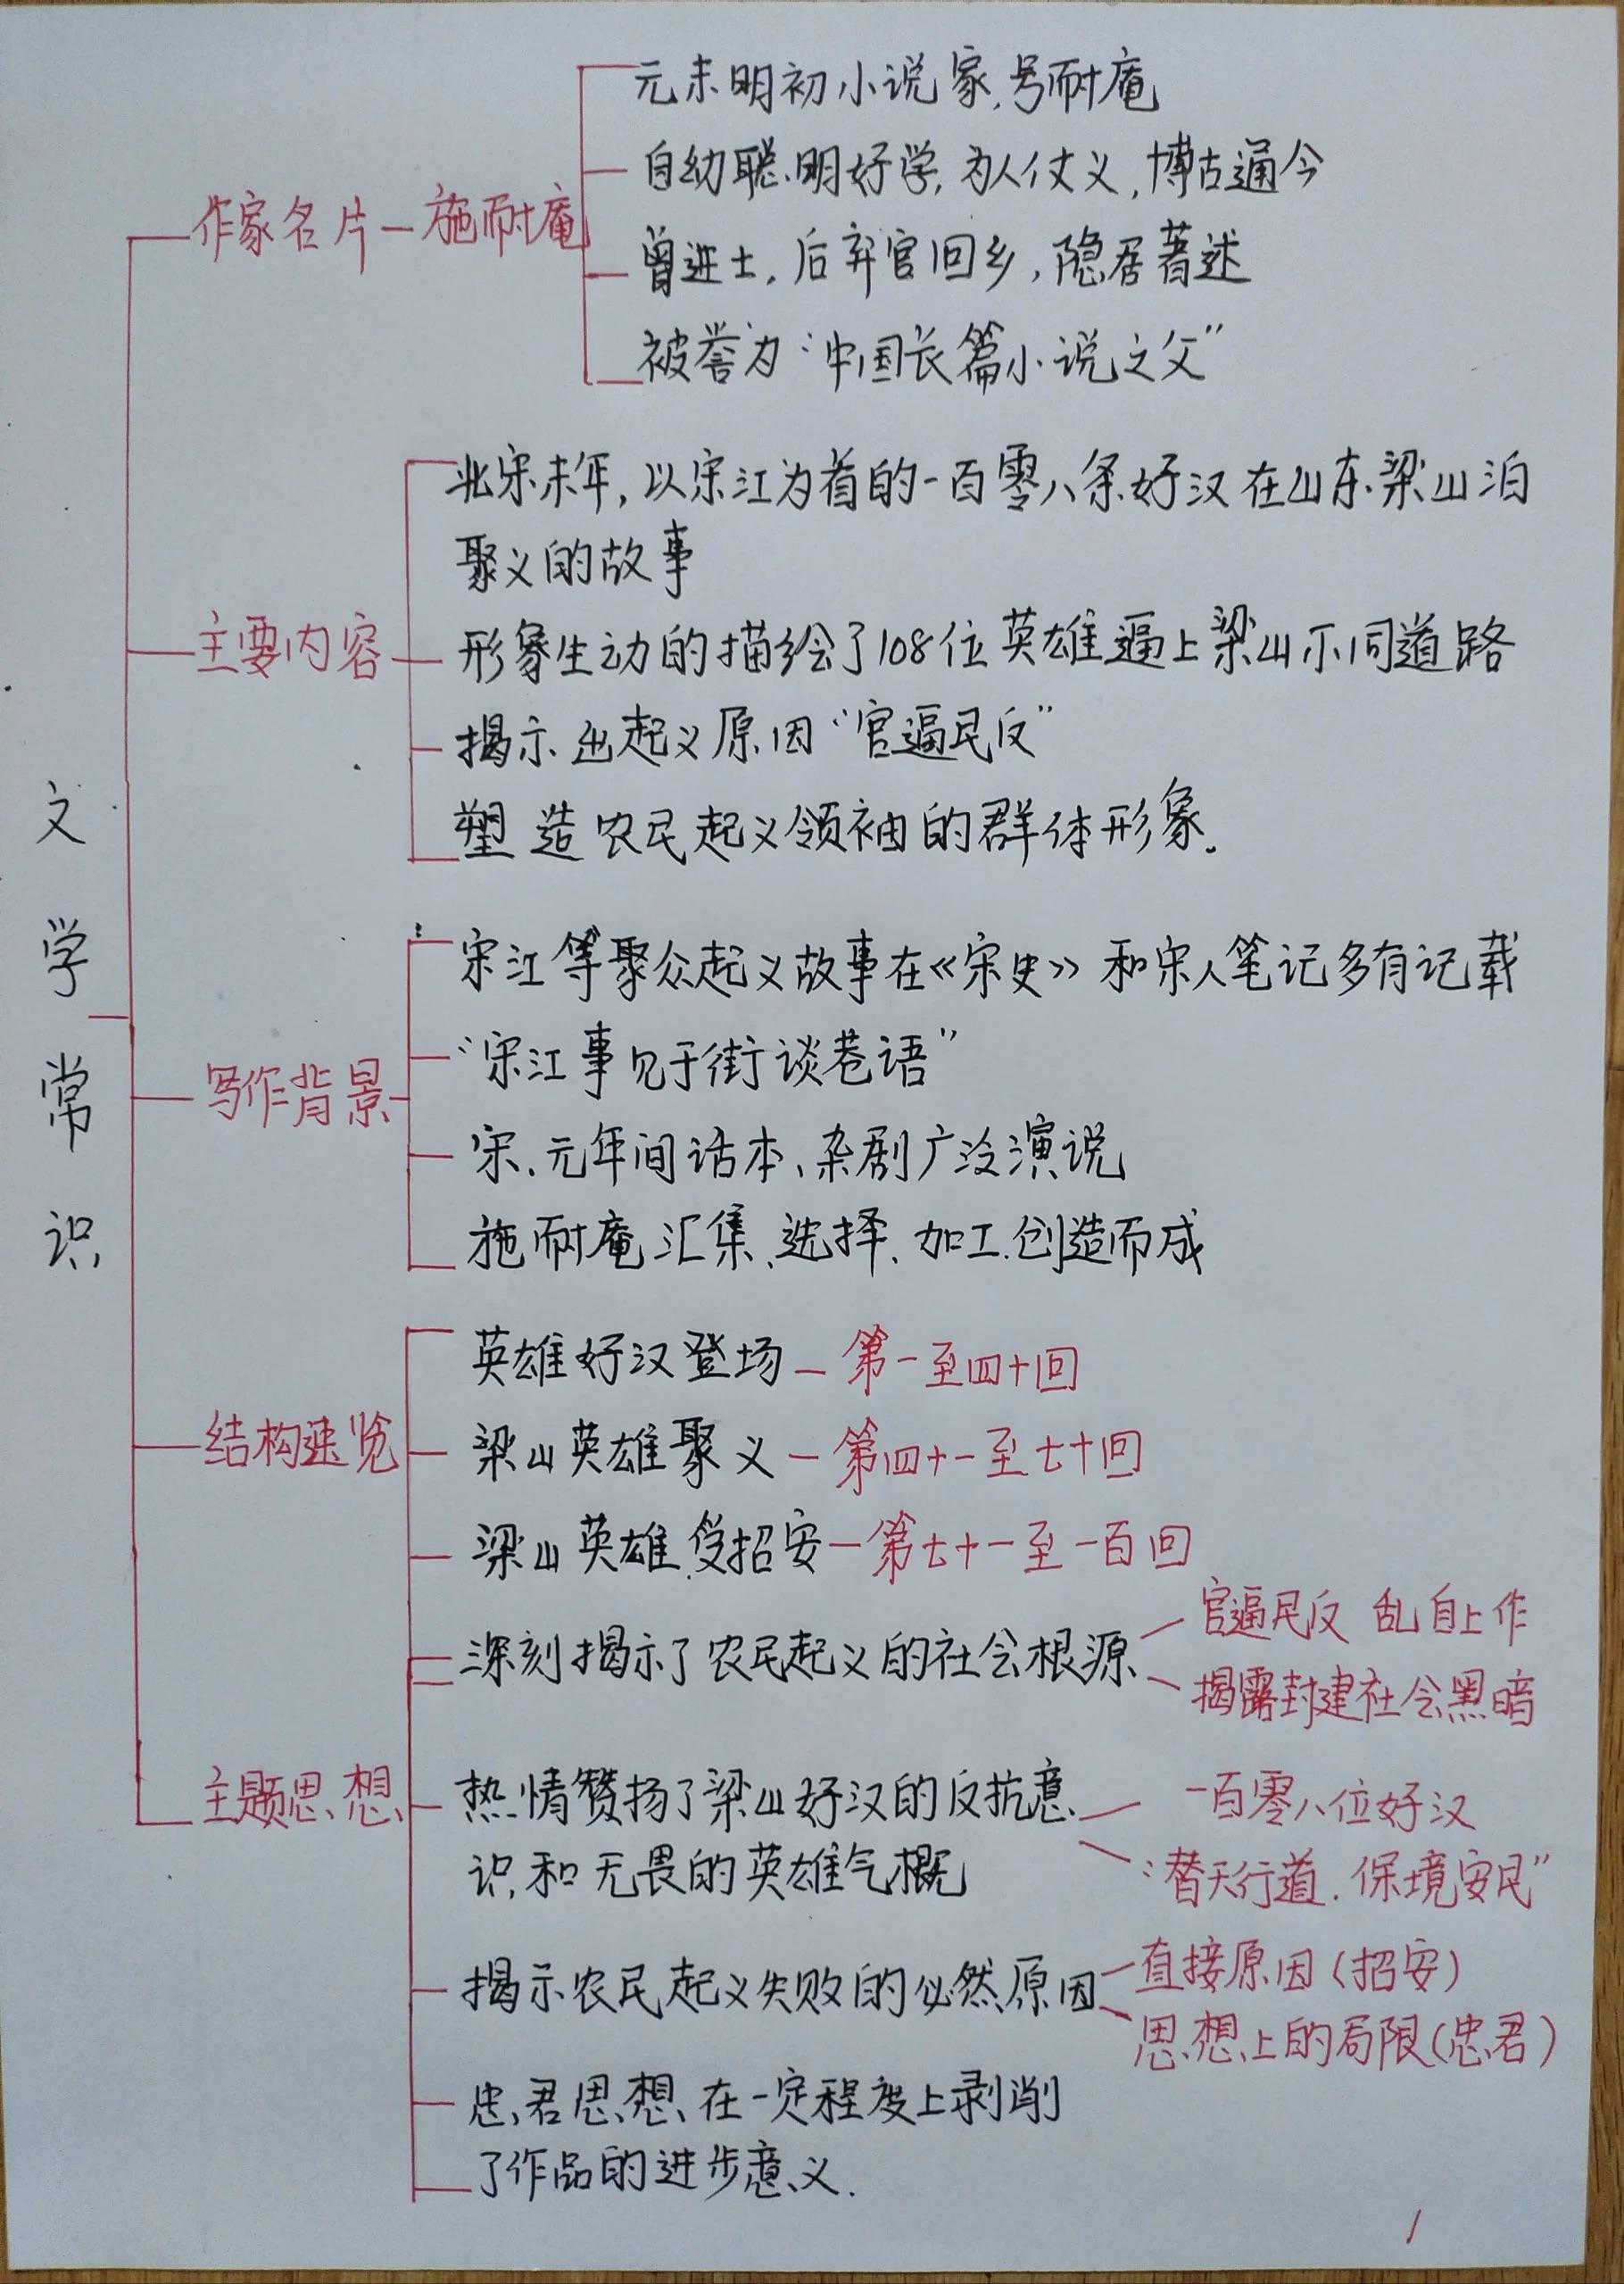 文学常识
作家名片—施耐庵
元末明初小说家,号耐庵
自幼聪明好学,为人仗义,博古通今
曾进士,后弃官回乡,隐居著述
被誉为“中国长篇小说之父”
主要内容
北宋末年,以宋江为首的一百零八条好汉在山东梁山泊
聚义的故事
形象生动的描绘了108位英雄逼上梁山不同道路
揭示出起义原因“官逼民反”
塑造农民起义领袖的群体形象.
写作背景
宋江等聚众起义故事在《宋史》和宋人笔记多有记载
“宋江事见于街谈巷语”
宋、元年间话本、杂剧广泛演说
施耐庵汇集、选择、加工、创造而成
结构速览
英雄好汉登场—第一至四十回
梁山英雄聚义—第四十一至七十回
梁山英雄受招安—第七十一至一百回
主题思想
深刻揭示了农民起义的社会根源
官逼民反 乱自上作
揭露封建社会黑暗
热情赞扬了梁山好汉的反抗意
识和无畏的英雄气概
一百零八位好汉
“替天行道、保境安民”
揭示农民起义失败的必然原因
直接原因(招安)
思想上的局限(忠君)
忠君思想在一定程度上剥削
了作品的进步意义.
1